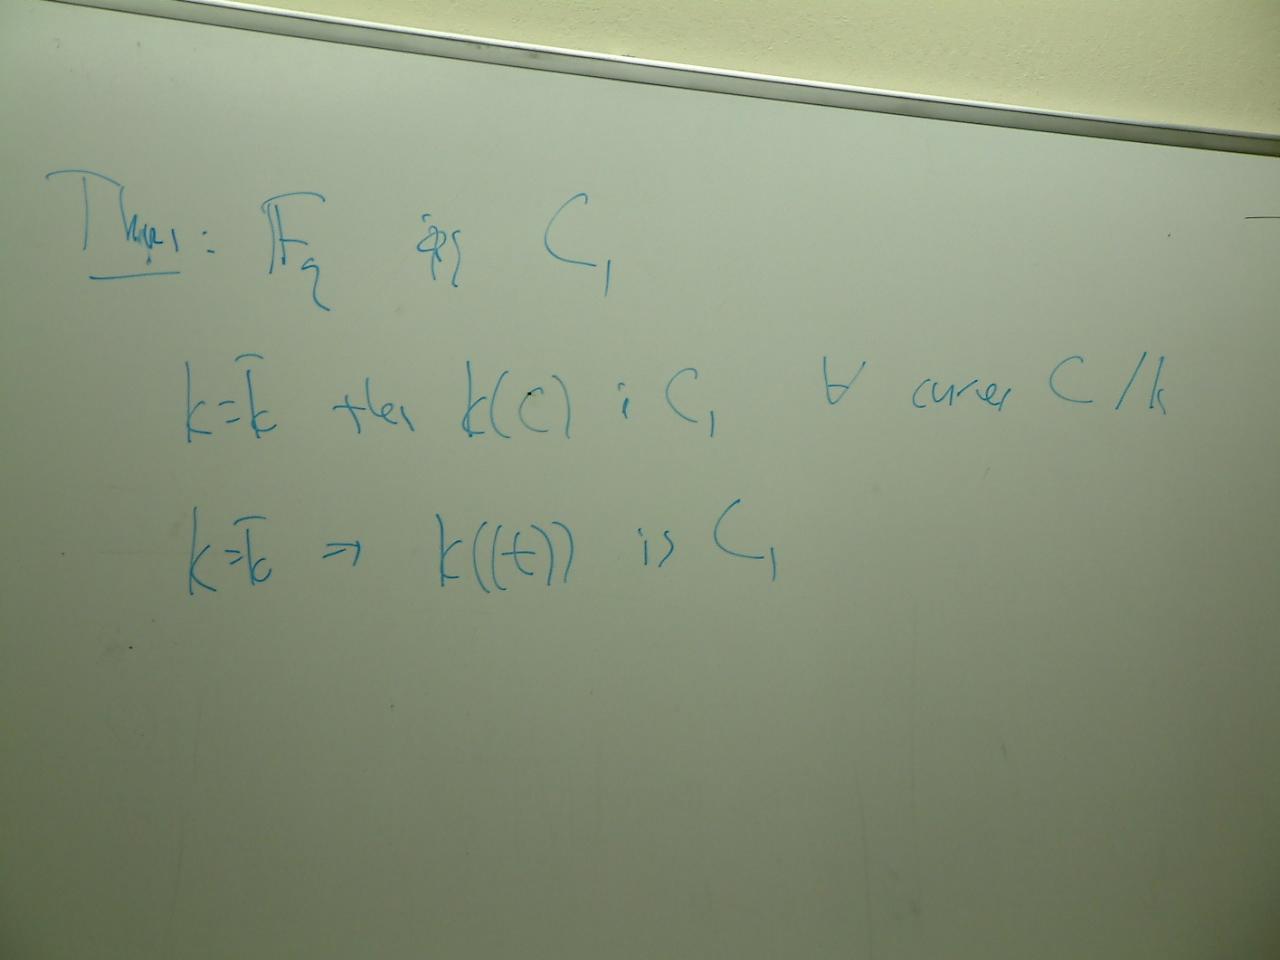 Thm: 𝔽_q is C_1
k=k̄ then k(C) i C_1 ∀ curves C/k
k=k̄ ⇒ k((t)) is C_1